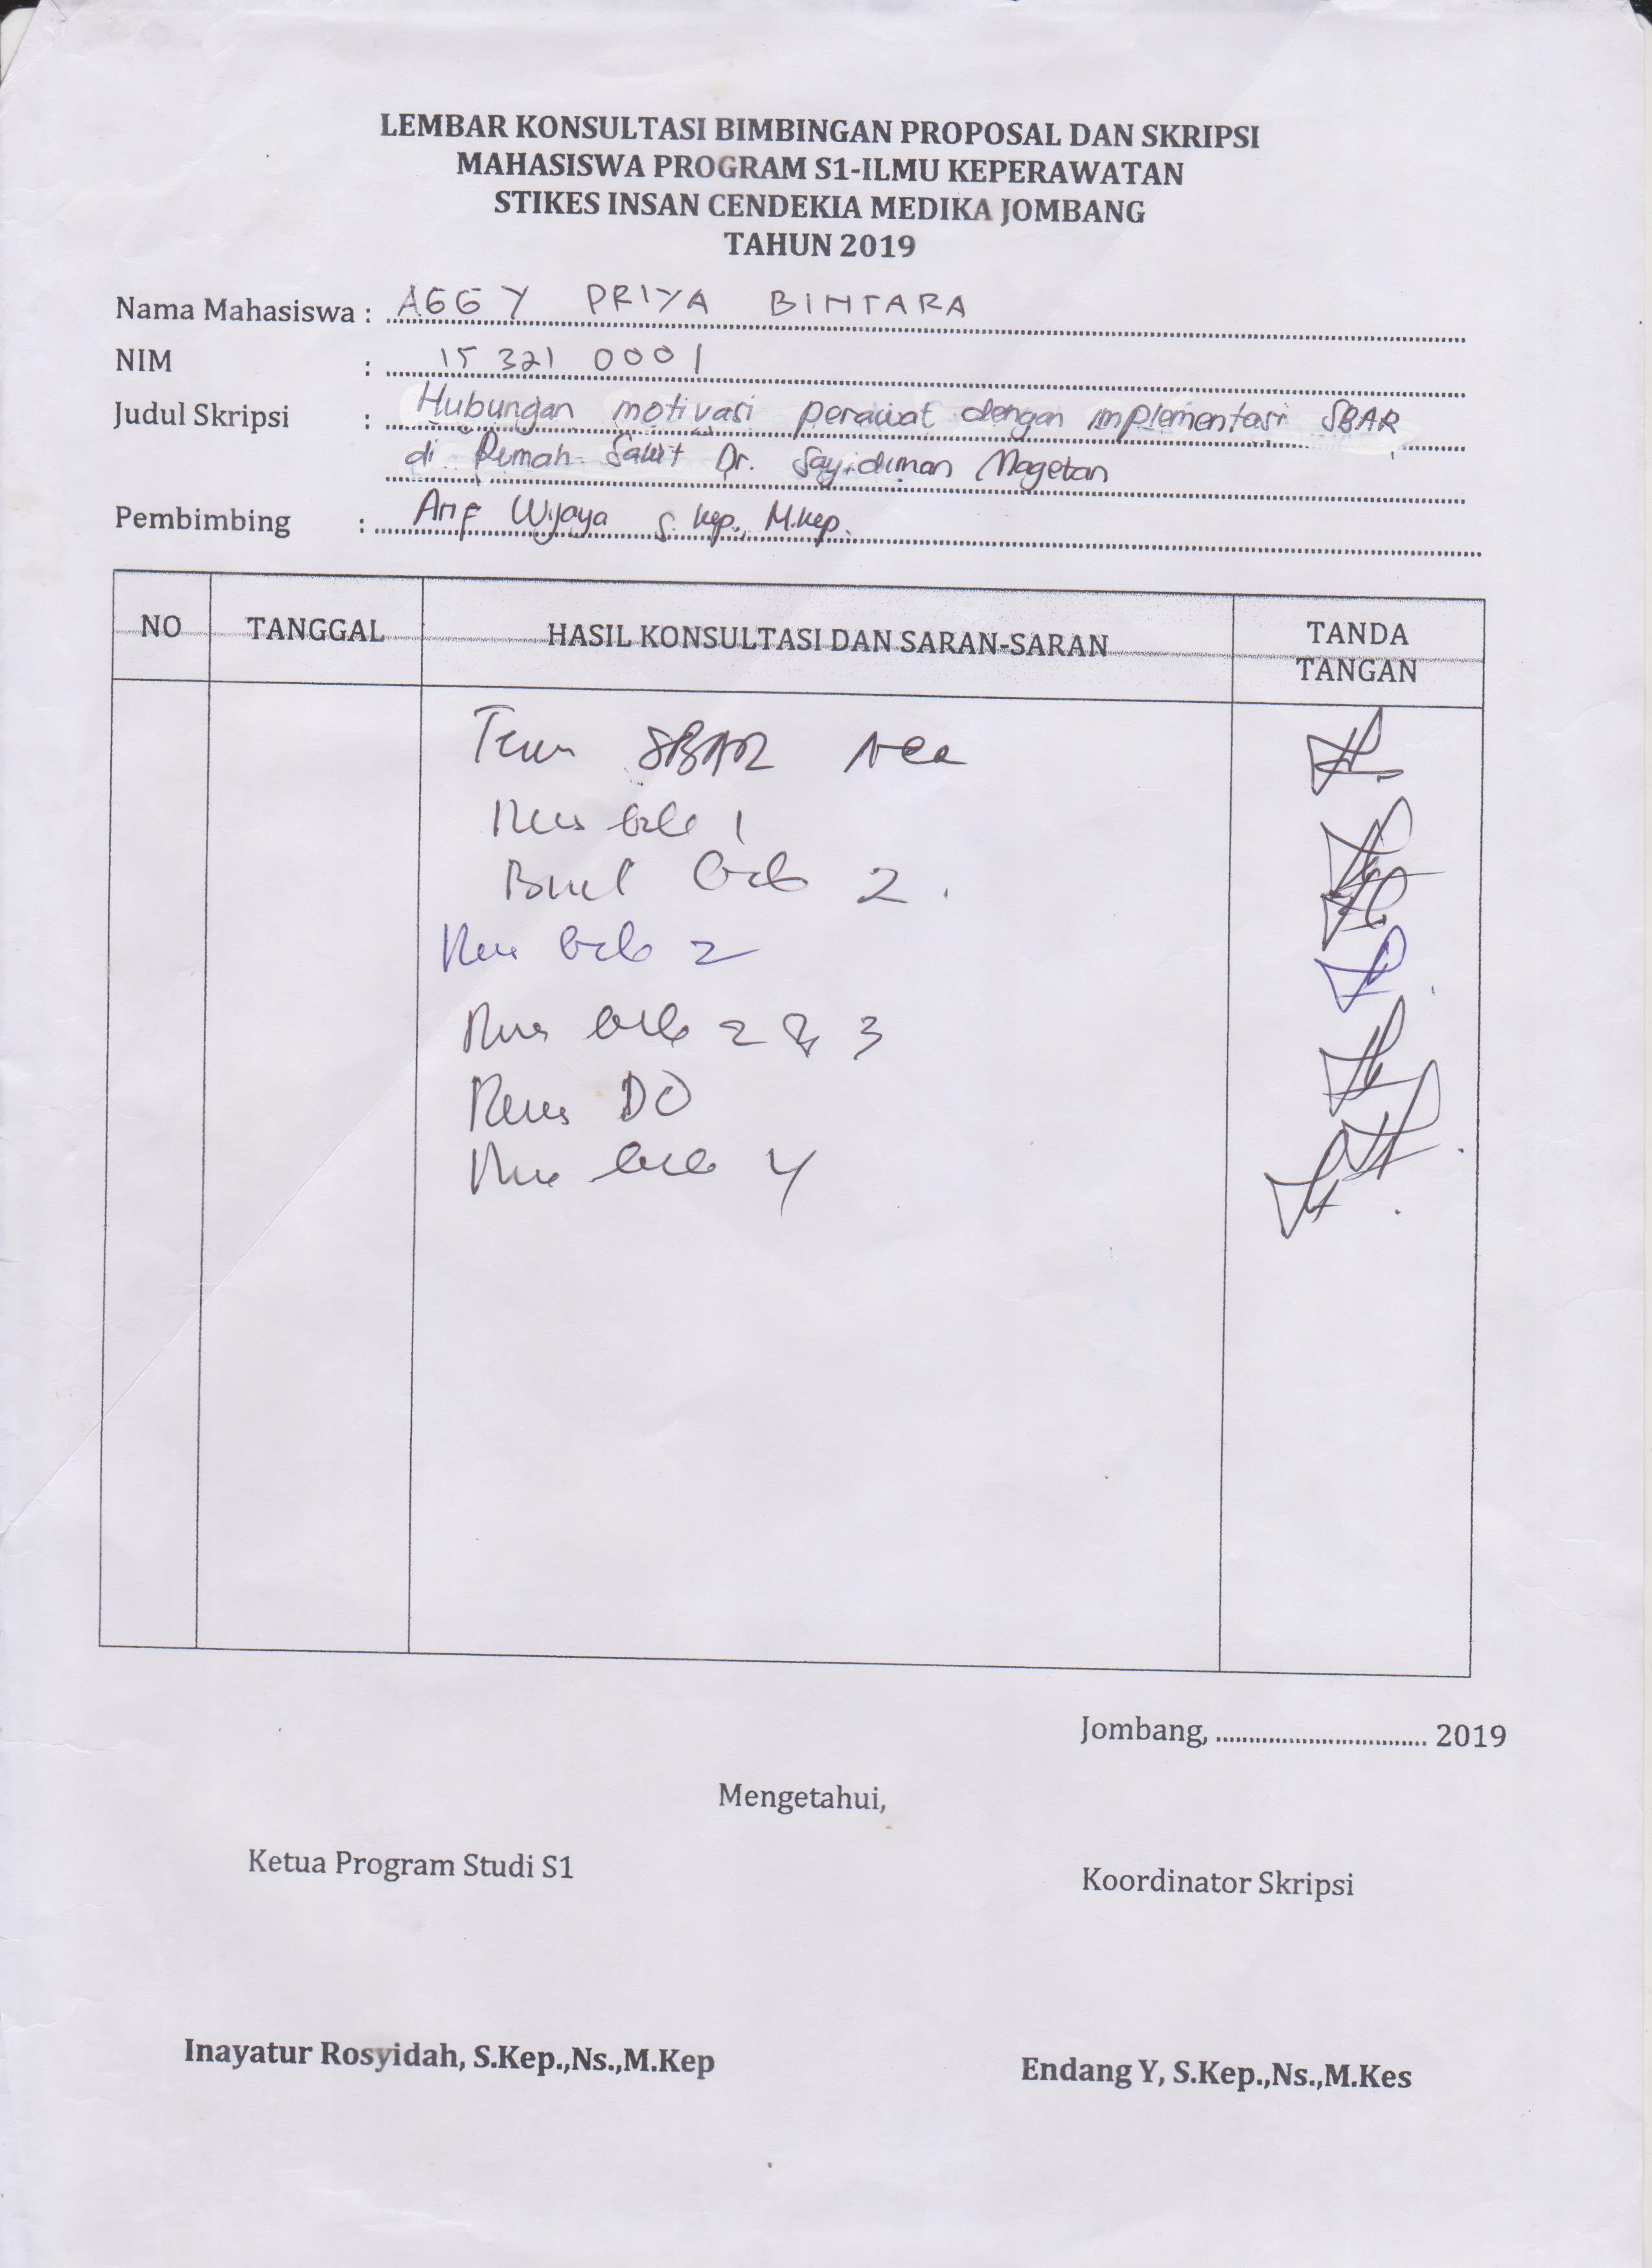 LEMBAR KONSULTASI BIMBINGAN PROPOSAL DAN SKRIPSI
MAHASISWA PROGRAM S1-ILMU KEPERAWATAN
STIKES INSAN CENDEKIA MEDIKA JOMBANG
TAHUN 2019
Nama Mahasiswa : AGGY PRIYA BINTARA
NIM : 15 321 0001
Judul Skripsi : Hubungan motivasi perawat dengan implementasi SBAR
di Rumah Sakit Dr. Sayidiman Magetan
Pembimbing : Arif Wijaya S. Kep., M.Kep.
NO TANGGAL HASIL KONSULTASI DAN SARAN-SARAN TANDA TANGAN
SBAR
bab 1
bab 2.
bab 2
bab 2 & 3
DO
bab 4
Jombang, ................................ 2019
Mengetahui,
Ketua Program Studi S1 Koordinator Skripsi
Inayatur Rosyidah, S.Kep.,Ns.,M.Kep Endang Y, S.Kep.,Ns.,M.Kes